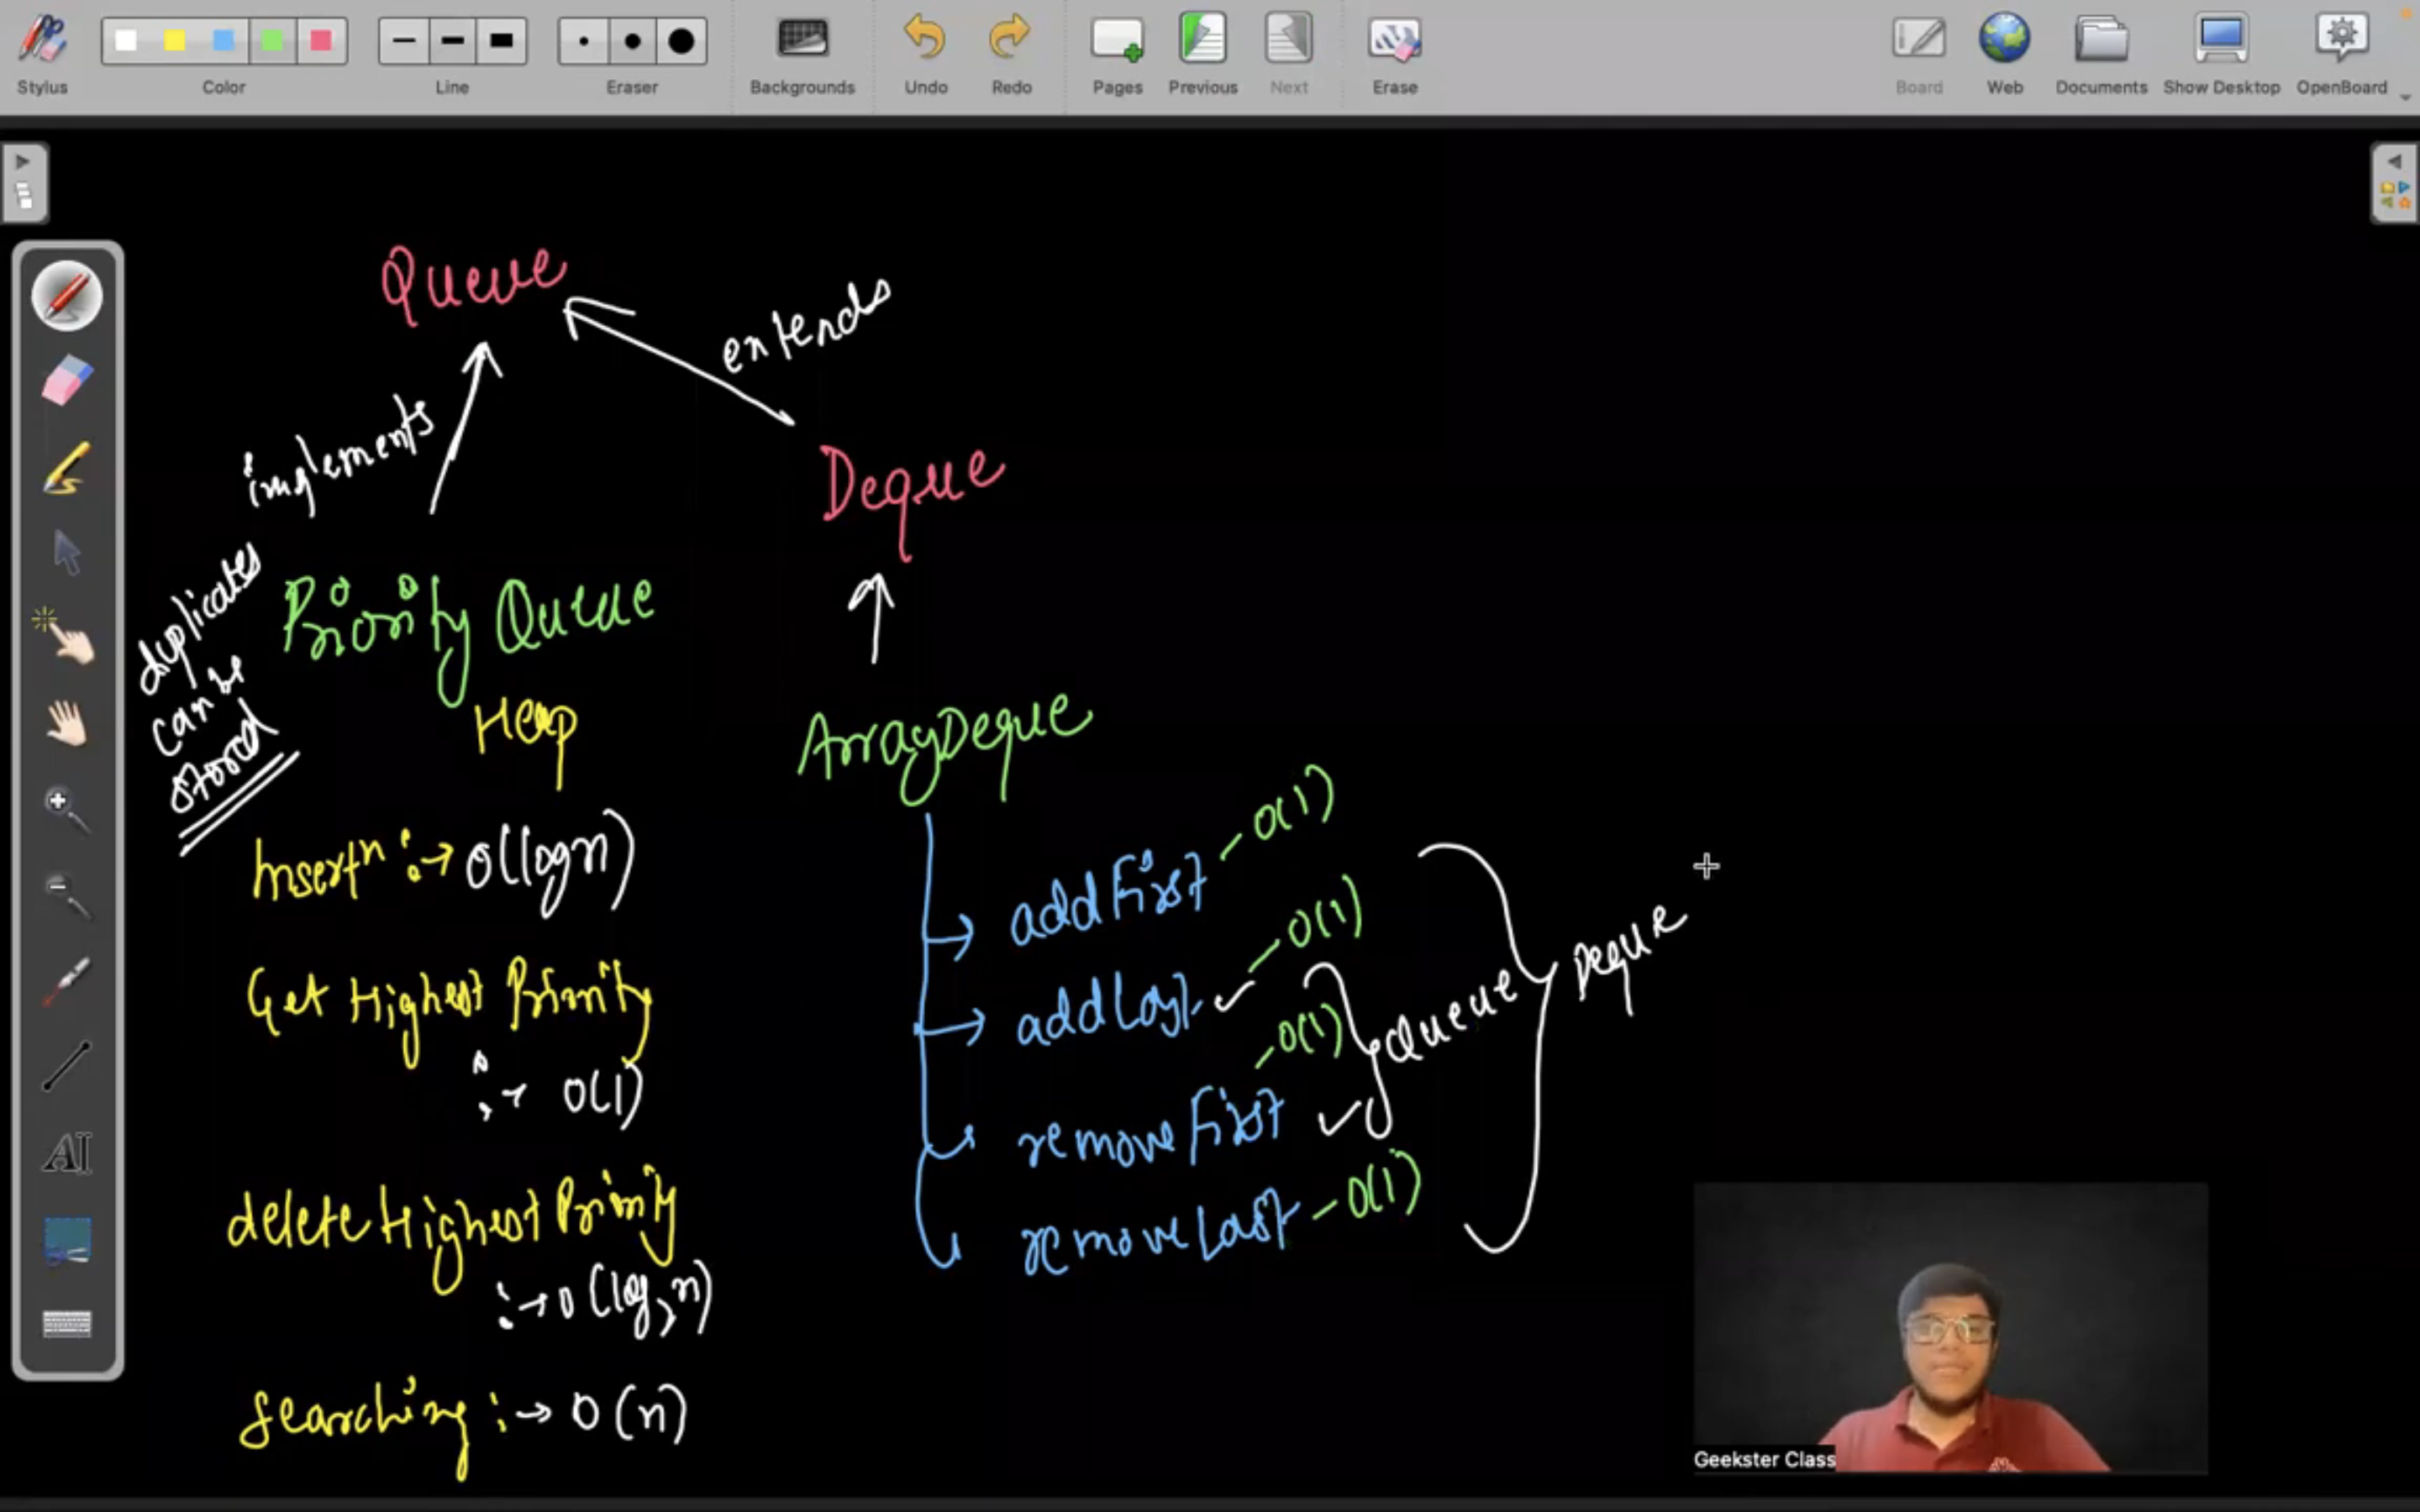 Stylus
Color
Line
Eraser
Backgrounds
Undo
Redo
Pages
Previous
Next
Erase
Board
Web
Documents
Show Desktop
OpenBoard
Queue
implements
extends
Deque
Priority Queue
Heap
duplicates
can be
stored
Insertn :→ O(logn)
Get Highest Priority
:→ O(1)
delete Highest Priority
:→ O(log2n)
Searching :→ O(n)
ArrayDeque
addFirst - O(1)
addLast ✓ - O(1)
removeFirst ✓ - O(1)
removeLast - O(1)
Queue
Deque
AI
Geekster Class